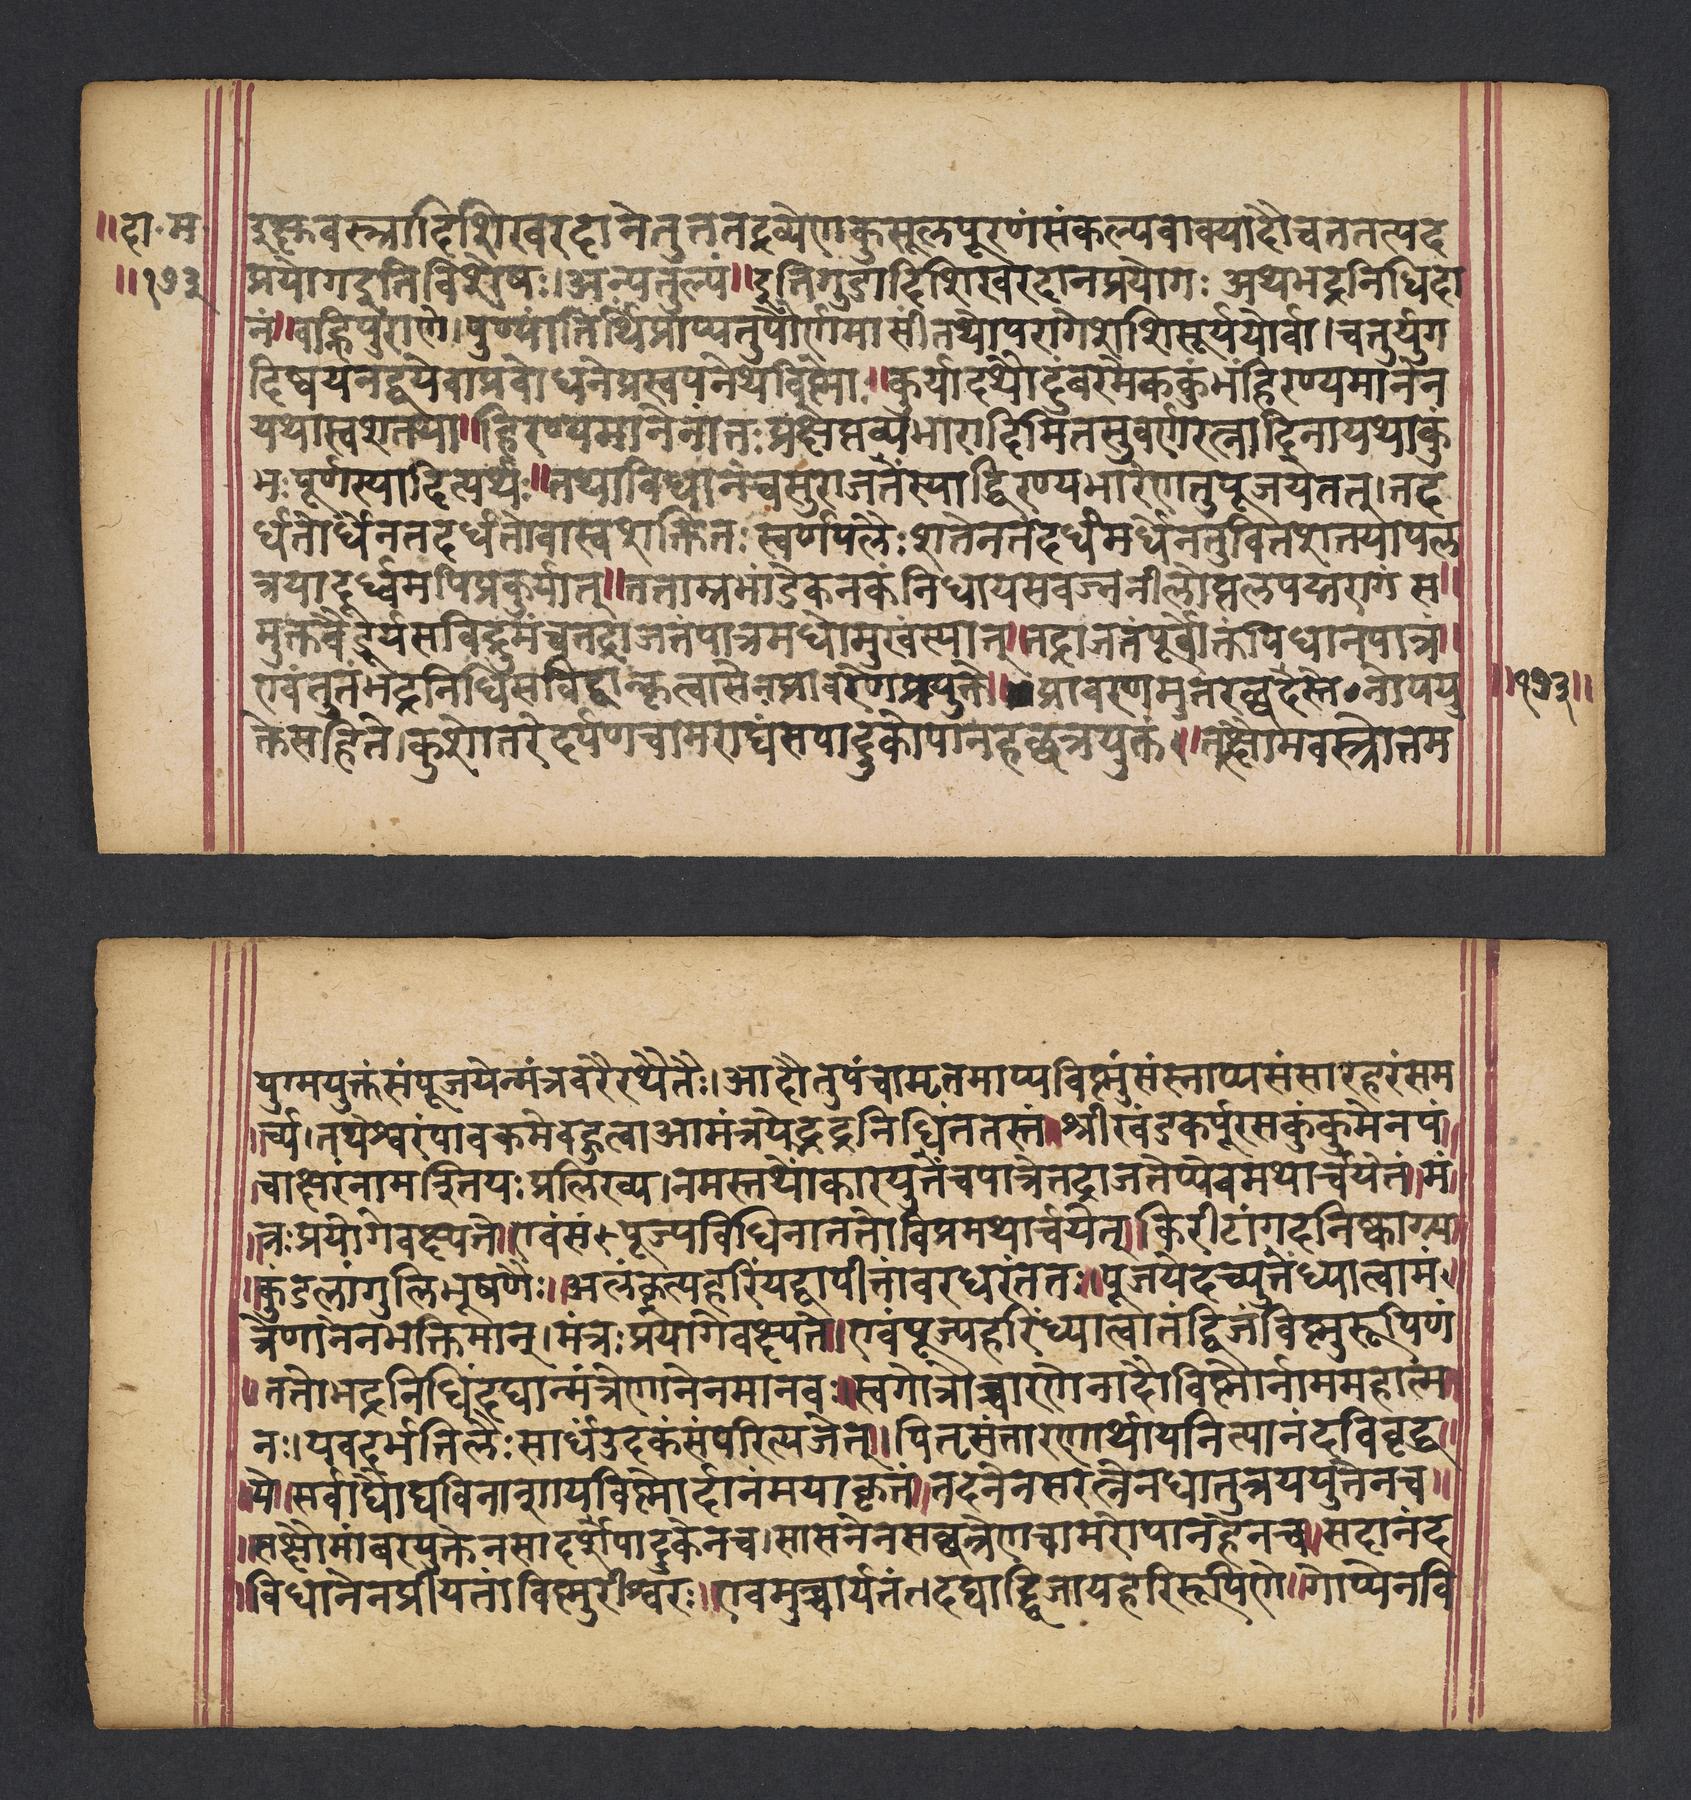 ॥दा॰म॰
॥१७३
दुष्कवस्त्रादिशिखरदानेतुतत्तद्रव्येणकुसूलपूरणंसंकल्पवाक्यादौचतत्तत्पद
प्रयोगइतिविशेषः।अन्यत्तुल्यं॥इतिगुडादिशिखरदानप्रयोगः अथभद्रनिधिदा
नं॥वह्निपुराणे।पुण्यांतिथिंप्राप्यतुपौर्णमासींतथोपरागेशशिसूर्ययोर्वा।चतुर्युग
दिष्वयनद्वयेवाप्रबोधनेप्रस्वपनेथविष्णोः॥कुर्यादथौदुंबरमेककुंभंहिरण्यमानेन
यथास्वशक्त्या॥हिरण्यमानेनांतःप्रक्षेप्तव्यभारादिमितसुवर्णरत्नादिनायथाकुं
भःपूर्णस्यादित्यर्थः॥तथाविधानंचसुराजतंस्याद्धिरण्यभारेणतुपूजयेत्तत्।तद
र्धतोर्धेनतदर्धतोवास्वशक्तितःस्वर्णपलैःशतेनतदर्धमर्धेनतुवित्तशक्त्यापल
त्रयादूर्ध्वमपिप्रकुर्यात्॥तताम्रभांडेकनकंनिधायसवज्रनीलोत्पलपद्मरागं स॥
मुक्तवैडूर्यसविद्रुमंचतद्राजतंपात्रमधोमुखंस्यात्॥तद्राजतंपूर्वोक्तंपिधानपात्रं॥
एवंतुतंभद्रनिधिंसविद्वान्कृत्वासनेप्रावरणेप्रयुक्ते॥प्रावरणमुत्तरछदस्ते॰नोपयु
क्तेसहिते।कुशोत्तरेदर्पणचामराघंसपादुकोपानहछत्रयुक्तं॥तंक्षौमवस्त्रोत्तम
॥१७३॥
युग्मयुक्तंसंपूजयेन्मंत्रवरैरथैतैः।आदौतुपंचामृतमाप्यविष्णुंसंस्नाप्यसंसारहरंसम
र्च्य।तथेश्वरंपावकमेवहुत्वाआमंत्रयेद्भद्रनिधिंततस्तं॥श्रीखंडकर्पूरसकुंकुमेनपं
चाक्षरंनामत्रितयःप्रलिख्य।नमस्तथोंकारयुतंचपात्रेतद्राजतेप्येवमथार्चयेत्तं॥मं
त्रःप्रयोगेवक्ष्यते॥एवंसंपूज्यविधिनाततोविप्रमथार्चयेत्॥किरीटांगदनिष्काग्र्य
कुंडलांगुलिभूषणैः॥अलंकृत्यहरिंयद्वापीतांवरधरंततः॥पूजयेदच्युतंध्यात्वामं
त्रेणानेनभक्तिमान्।मंत्रःप्रयोगेवक्ष्यते॥एवंपूज्यहरिंध्यात्वातंद्विजंविष्णुरूपिणं
॥ततोभद्रनिधिंदद्यान्मंत्रेणानेनमानवः॥स्वगोत्रोच्चारणेनादौविष्णोर्नाममहात्म
नः।यवदर्भतिलैःसार्धंउदकंसंपरित्यजेत्॥पितृसंतारणार्थायनित्यानंदविवृद्ध
ये॥सर्वाघौघविनाशायविष्णोर्दानंमयाकृतं॥तदनेनसरत्नेनधातुत्रययुतेनच॥
॥सक्षौमांबरयुक्तेनसादर्शोपादुकेनच।सासनेनसच्छत्रेणचामरोपानहेनच॥सदानंद
॥विधानेनप्रीयतांविष्णुरीश्वरः॥एवमुच्चार्यतंतदद्याद्द्विजायहरिरूपिणे॥गोप्येनवि